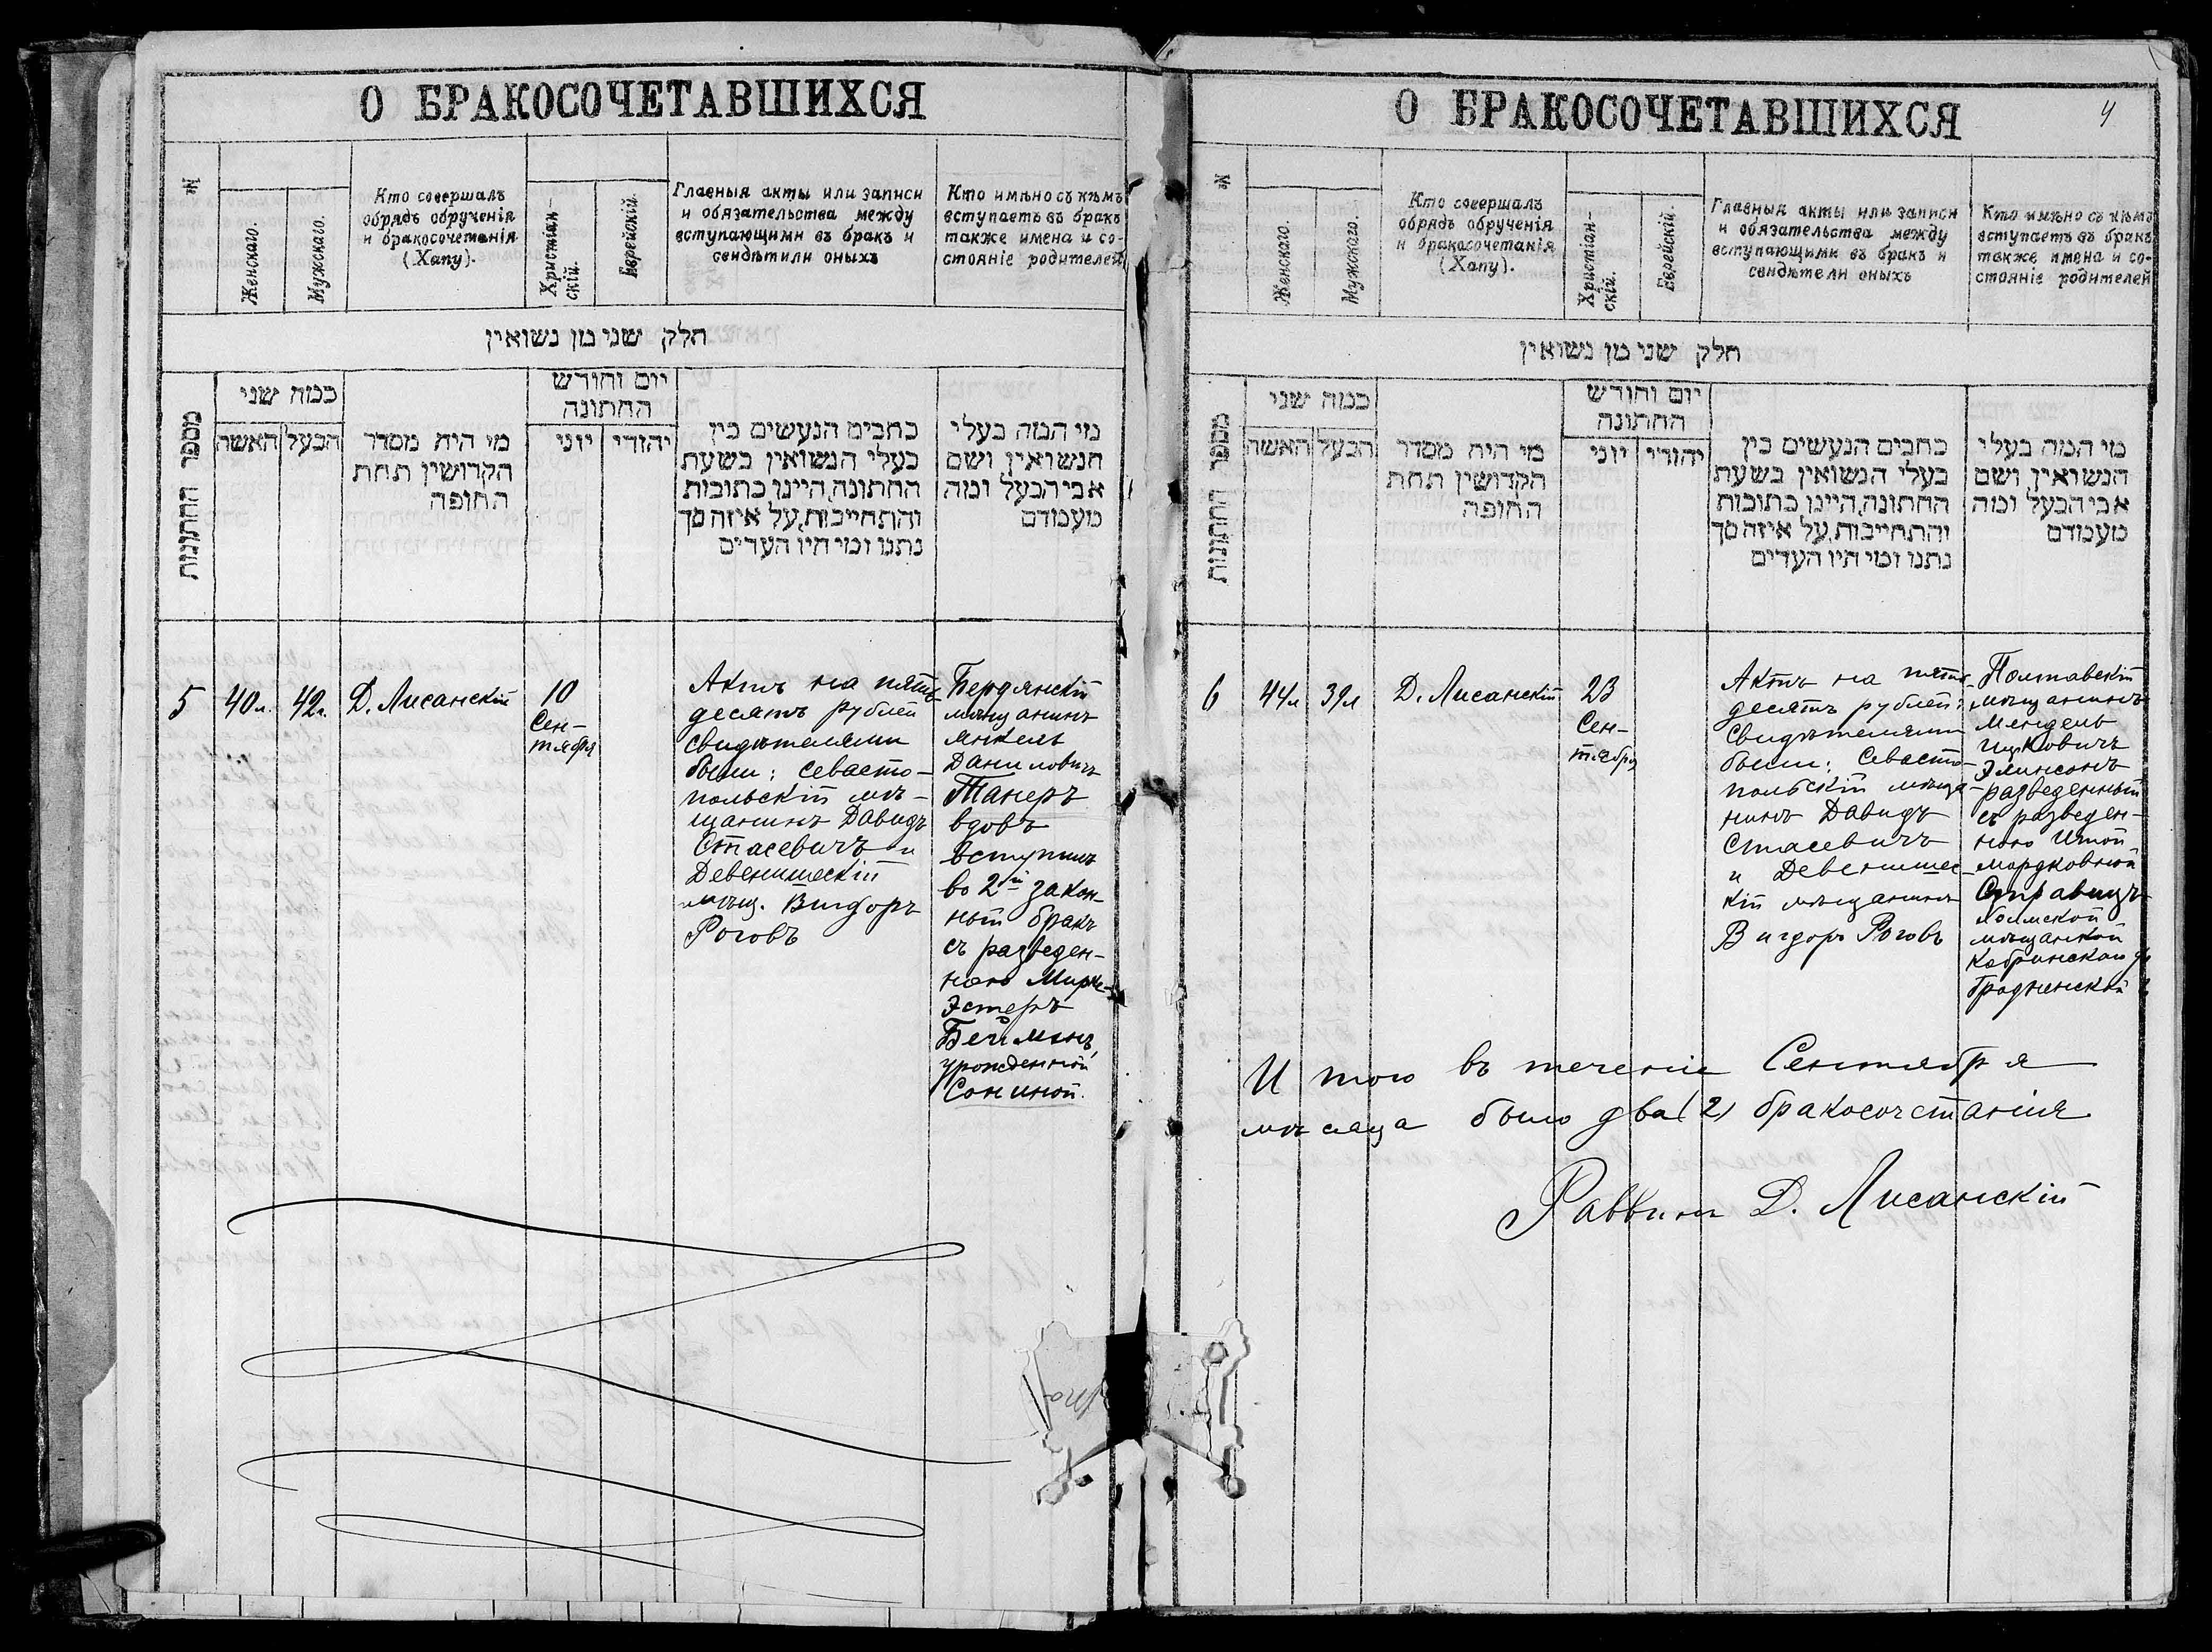 О БРАКОСОЧЕТАВШИХСЯ
№
Женскаго.
Мужскаго.
Кто совершалъ
обрядъ обрученія
и бракосочетанія
(Хапу).
Христіан-
скій.
Еврейскій.
Главныя акты или записи
и обязательства между
вступающими въ бракъ и
свидѣтили оныхъ
Кто имѣно съ кѣмъ
вступаетъ въ бракъ
также имена и со-
стояніе родителей
חלק שני מן נשואין
מספר החתונות
כמה שני
האשה
הבעל
מי היה מסדר
הקדושין תחת
החופה
יום וחודש
החתונה
יוני
יהודי
כתבים הנעשים בין
בעלי הנשואין בשעת
החתונה,היינו כתובות
והתחייבות,על איזה סך
נתנו ומי היו העדים
מי המה בעלי
הנשואין ושם
אבי הבעל ומה
מעמדם
5
40 л.
42 л.
Д. Лисанскій
10
Сен-
тября
Актъ на пять
десятъ рублей
свидѣтелями
были: севасто-
польскій мѣ-
щанинъ Давидъ
Стасевичъ и
Девенишскій
мѣщ. Вигдоръ
Роговъ
Бердянскій
мѣщанинъ
Янкель
Даниловичъ
Танеръ
вдовъ
вступилъ
во 2й закон-
ный бракъ
съ разведен-
ною Мирке-
Эстеръ
Бейлинъ,
урожденной
Сониной.
О БРАКОСОЧЕТАВШИХСЯ
4
№
Женскаго.
Мужскаго.
Кто совершалъ
обрядъ обрученія
и бракосочетанія
(Хапу).
Христіан-
скій.
Еврейскій.
Главныя акты или записи
и обязательства между
вступающими въ бракъ и
свидѣтели оныхъ
Кто имѣно съ кѣмъ
вступаетъ въ бракъ
также имена и со-
стояніе родителей
חלק שני מן נשואין
מספר החתונות
כמה שני
האשה
הבעל
מי היה מסדר
הקדושין תחת
החופה
יום וחודש
החתונה
יוני
יהודי
כתבים הנעשים בין
בעלי הנשואין בשעת
החתונה,היינו כתובות
והתחייבות,על איזה סך
נתנו ומי היו העדים
מי המה בעלי
הנשואין ושם
אבי הבעל ומה
מעמדם
6
44 л
39 л
Д. Лисанскій
23
Сен-
тября
Актъ на пять-
десятъ рублей:
свидѣтелями
были: Севасто-
польскій мѣща-
нинъ Давидъ
Стасевичъ
и Девенишс-
кій мѣщанинъ
Вигдоръ Роговъ
Полтавскій
мѣщанинъ
Мендель
Ицковичъ
Элинсонъ
разведенный
съ разведен-
ною Итой
Мордковной
мѣщанской
Кобринской
Гродненской
Итого въ теченіи Сентября
мѣсяца было два (2) бракосочетанія.
Раввинъ Д. Лисанскій